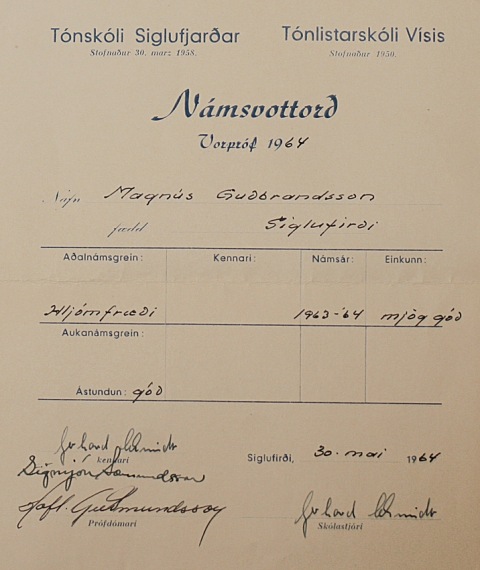 Tónskóli Siglufjarðar Tónlistarskóli Vísis
Stofnaður 30. marz 1958. Stofnaður 1950.
Námsvottorð
Vorpróf 1964
Nafn Magnús Guðbrandsson
fædd Siglufirði
Aðalnámsgrein: Kennari: Námsár: Einkunn:
Hljómfræði 1963-'64 mjög góð
Aukanámsgrein:
Ástundun: góð
Gerhard Schmidt
kennari
Siglufirði, 30. mai 1964
Sigurjón Sæmundsson
Hafl. Guðmundsson
Prófdómari
Gerhard Schmidt
Skólastjóri